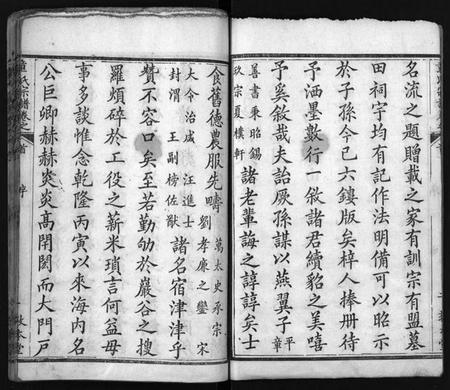 名流之題贈載之家有訓宗有盟墓
田祠宇均有記作法明備可以昭示
於子孫今已六鏤版矣梓人捧冊待
予洒墨數行一敘諸君續貂之美嘻
予奚敘哉夫詒厥孫謀以燕翼子平章
善書秉昭錫
玖宗夏樸軒
諸老輩誨之諄諄矣士
食舊德農服先疇萬太史承宗
劉孝廉之鑾宋
大令治成汪進士
封渭王副榜佐猷
諸名宿津津乎
贊不容口矣至若勤劬於巖谷之搜
羅煩碎於工役之薪米瑣言何益毋
事多談惟念乾隆丙寅以來海内名
公巨卿赫赫炎炎高閈閎而大門戸
氏宗譜卷之首
序